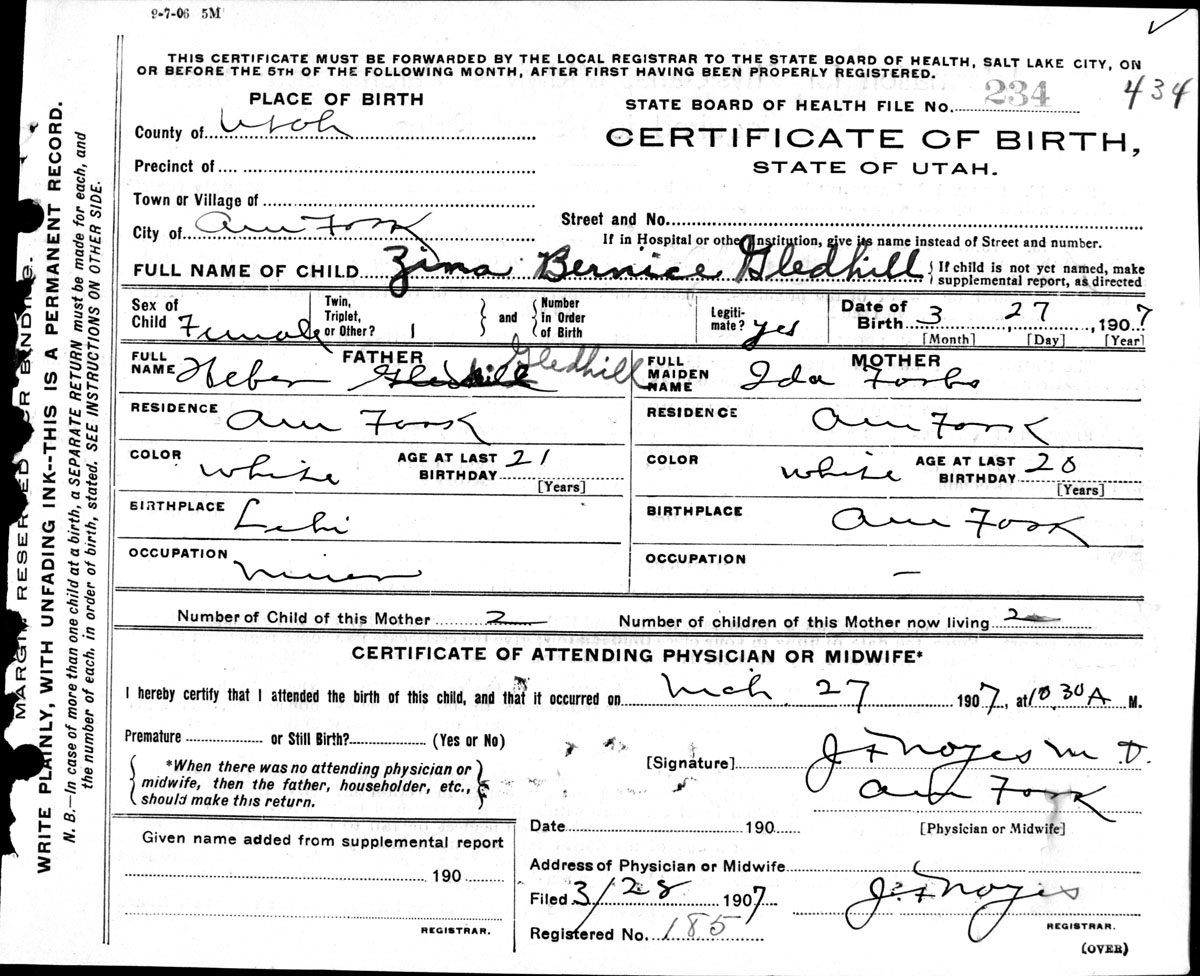 9-7-06 5M
THIS CERTIFICATE MUST BE FORWARDED BY THE LOCAL REGISTRAR TO THE STATE BOARD OF HEALTH, SALT LAKE CITY, ON
OR BEFORE THE 5TH OF THE FOLLOWING MONTH, AFTER FIRST HAVING BEEN PROPERLY REGISTERED.
PLACE OF BIRTH
STATE BOARD OF HEALTH FILE No. 234 434
County of Utah
CERTIFICATE OF BIRTH,
STATE OF UTAH.
Precinct of
Town or Village of
Street and No.
City of Am Fork
If in Hospital or other Institution, give its name instead of Street and number.
FULL NAME OF CHILD Zina Bernice Gledhill { If child is not yet named, make supplemental report, as directed
Sex of Child Female
Twin, Triplet, or Other? 1 } and { Number in Order of Birth
Legiti-mate? yes
Date of Birth 3 27, 1907
[Month] [Day] [Year]
FATHER
FULL NAME Heber Gledhill Gledhill
RESIDENCE Am Fork
COLOR White AGE AT LAST BIRTHDAY 21
[Years]
BIRTHPLACE Lehi
OCCUPATION Miner
MOTHER
FULL MAIDEN NAME Ida Forbs
RESIDENCE Am Fork
COLOR White AGE AT LAST BIRTHDAY 20
[Years]
BIRTHPLACE Am Fork
OCCUPATION —
Number of Child of this Mother 2
Number of children of this Mother now living 2
CERTIFICATE OF ATTENDING PHYSICIAN OR MIDWIFE*
I hereby certify that I attended the birth of this child, and that it occurred on Mch 27 1907, at 10 30 A M.
Premature or Still Birth? (Yes or No)
*When there was no attending physician or
midwife, then the father, householder, etc.,
should make this return.
[Signature] J F Noyes M. D.
Am Fork
[Physician or Midwife]
Date 190
Given name added from supplemental report
190
REGISTRAR.
Address of Physician or Midwife
Filed 3/28 1907 J. F Noyes
REGISTRAR.
Registered No. 185
(OVER)
MARGIN RESERVED FOR BINDING.
WRITE PLAINLY, WITH UNFADING INK--THIS IS A PERMANENT RECORD.
N. B.—In case of more than one child at a birth, a SEPARATE RETURN must be made for each, and
the number of each, in order of birth, stated. SEE INSTRUCTIONS ON OTHER SIDE.